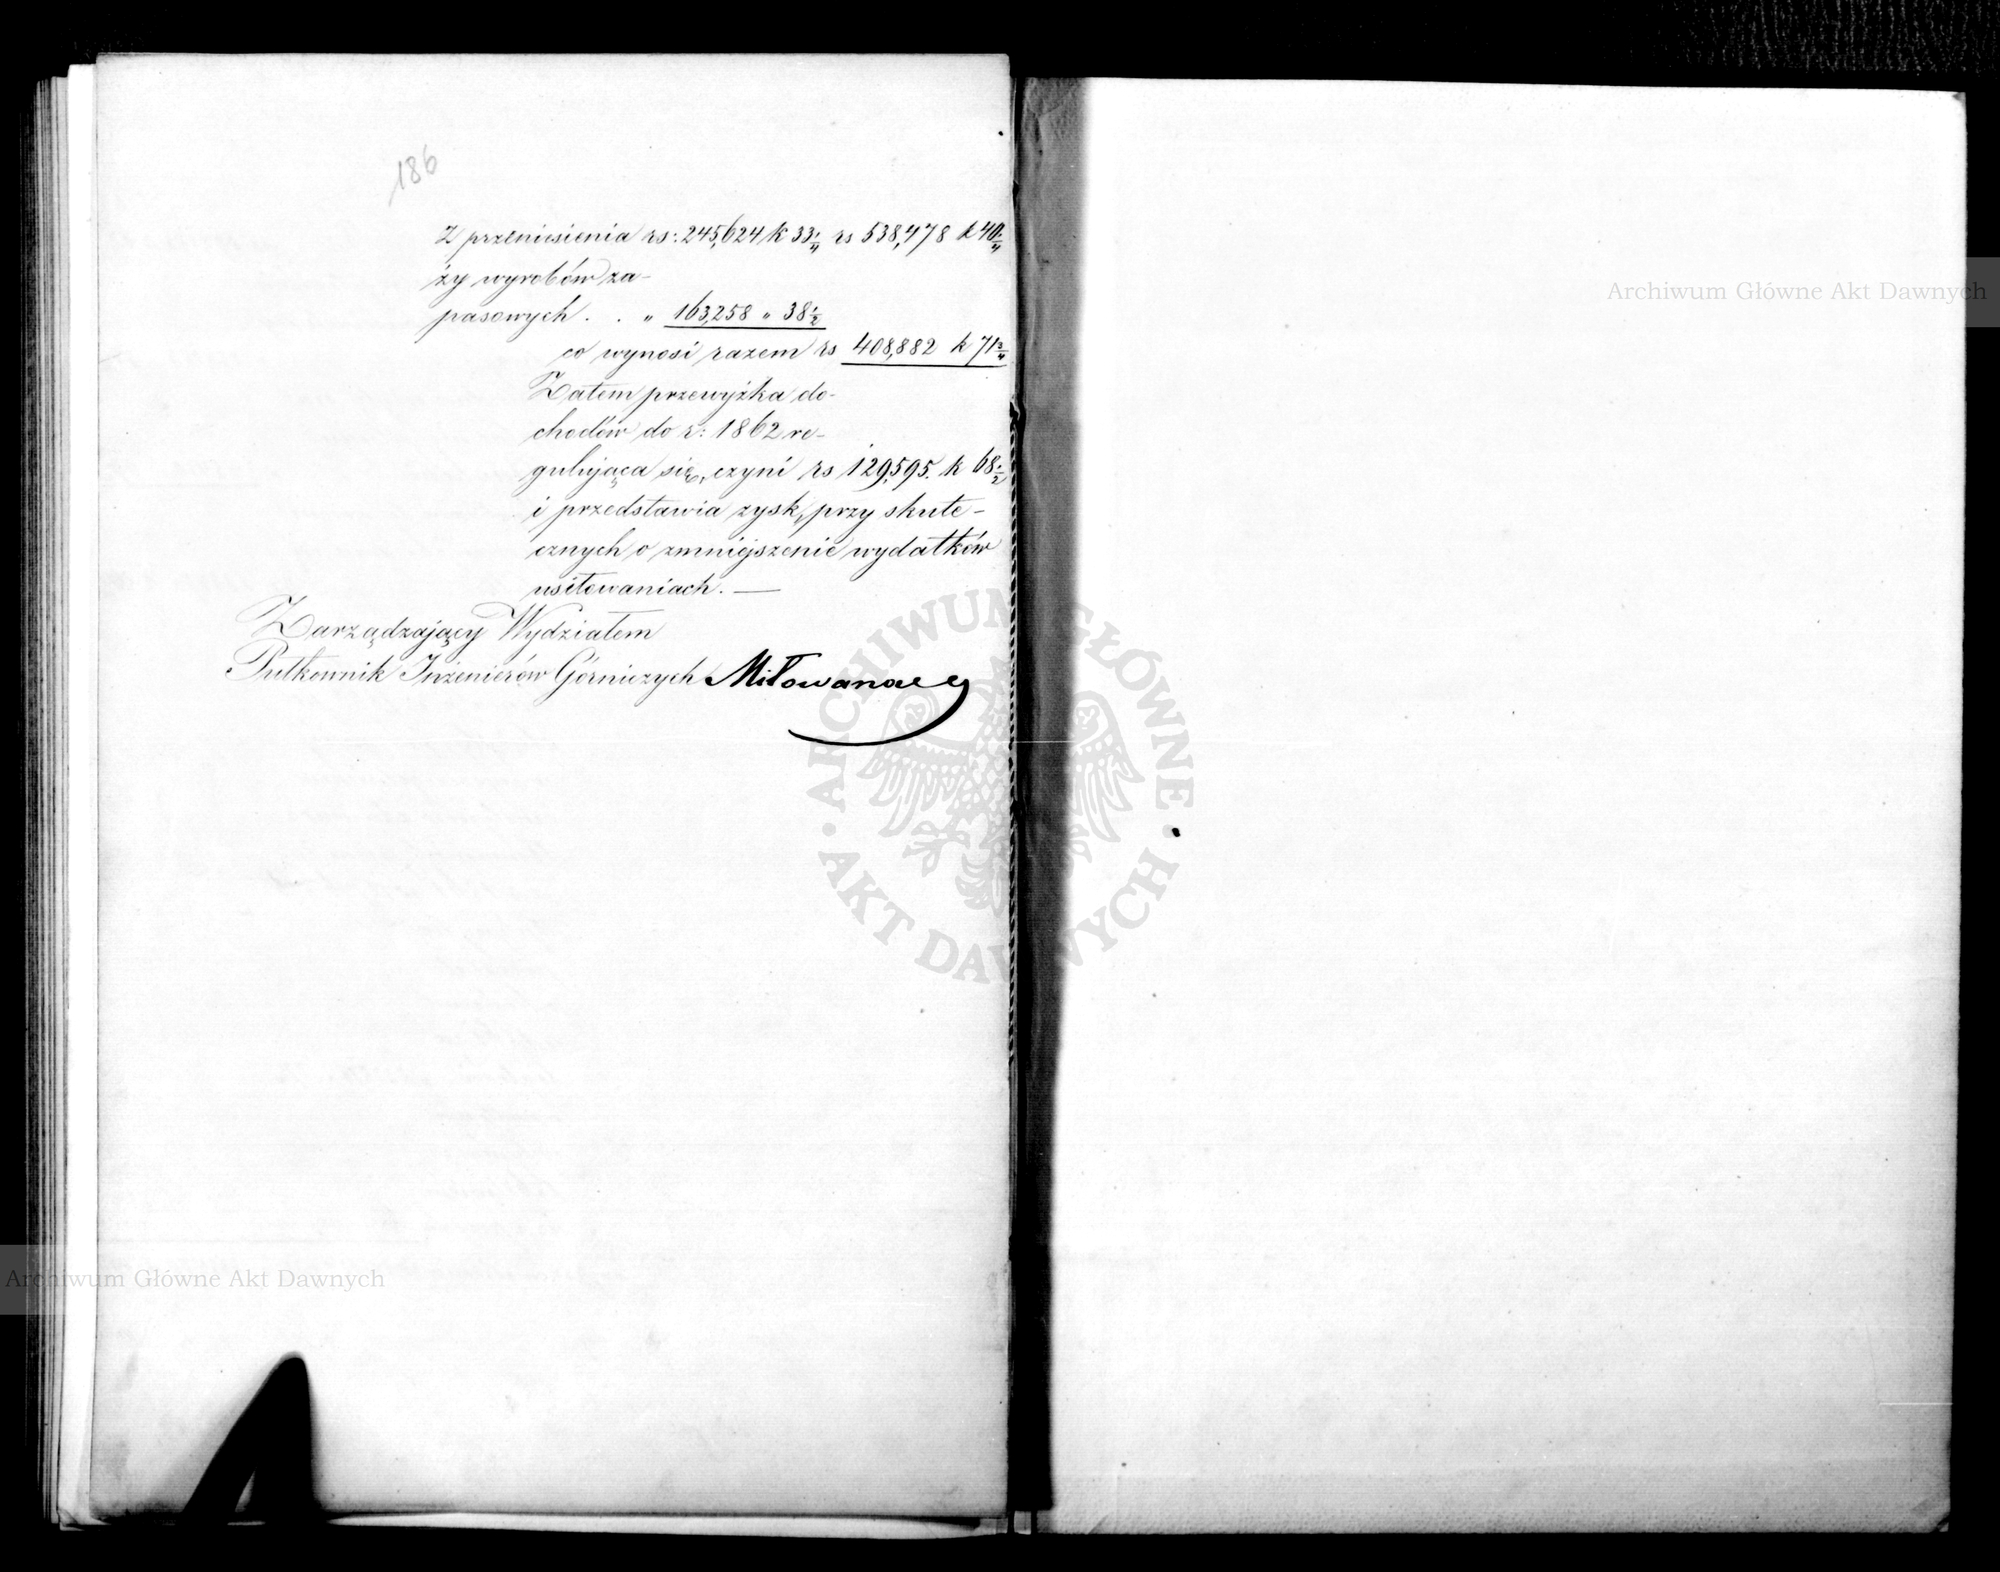 186
Z przeniesienia rs: 245,624 k 33¼ rs 538,478 k 40¼
ży wyrobów za-
pasowych . . „ 163,258 „ 38½
co wynosi razem rs 408,882 k 71¾
Zatem przewyżka do-
chodów do r: 1862 re-
gulująca się, czyni rs 129,595. k 68½
i przedstawia zysk, przy skute-
cznych o zmniejszenie wydatków
usiłowaniach. —
Zarządzający Wydziałem
Pułkownik Inżenierów Górniczych Miłowanow
Archiwum Główne Akt Dawnych
Archiwum Główne Akt Dawnych
ARCHIWUM GŁÓWNE • AKT DAWNYCH •